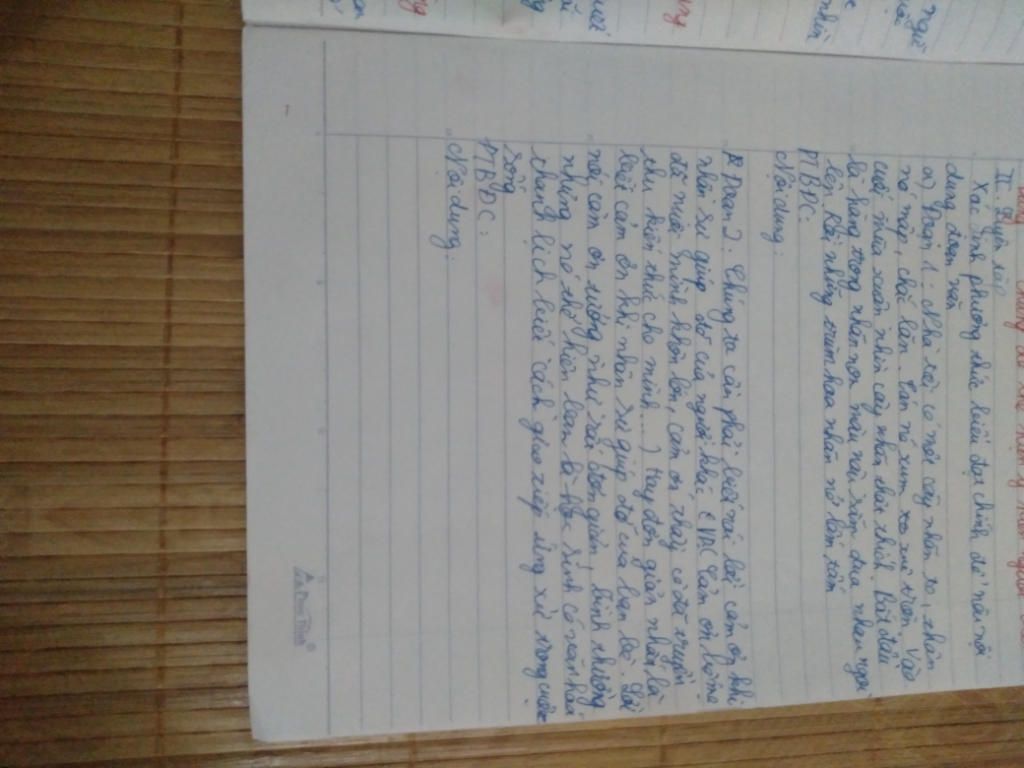 II. Luyện tập
Xác định phương thức biểu đạt chính để nêu nội
dung đoạn văn
a) Đoạn 1: Nhà tôi có một cây nhãn to, thân
nó mập, chắc lắm. Tán nó xum xuê trên. Vào
cuối mùa xuân nhìn cây nhãn thật thích. Bắt đầu
là hàng trong nhãn non mâu nâu sẫm đua nhau ngoi
lên. Rồi những chùm hoa nhãn nở lấm tấm
PTBĐC:
Nội dung:
Đoạn 2. Chúng ta cần phải biết nói lời cảm ơn khi
nhận sự giúp đỡ của người khác (VD: Cảm ơn bố mẹ
đã nuôi mình khôn lớn, cảm ơn thầy cô đã truyền
thụ kiến thức cho mình...) hay đơn giản nhất là
biết cảm ơn khi nhận sự giúp đỡ của bạn bè. Lời
nói cảm ơn tưởng như rất đơn giản, bình thường
nhưng nó thể hiện bạn là học sinh có văn hóa
thanh lịch biết cách giao tiếp ứng xử trong cuộc
sống
PTBĐC:
Nội dung: